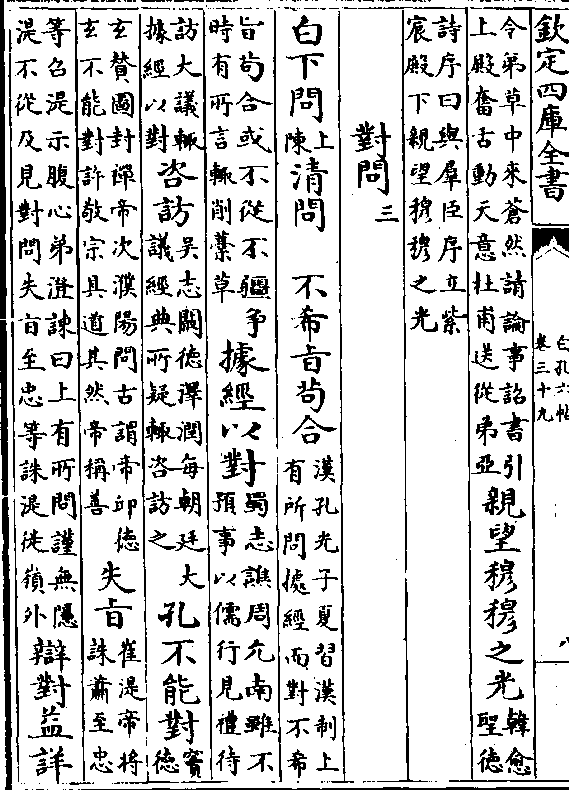 欽定四庫全書
白孔六帖
卷三十九
八
令弟草中來蒼然請論事詔書引
上殿奮舌動天意杜甫送從弟亞
親望穆穆之光
韓愈
聖德
詩序曰與羣臣序立紫
宸殿下親望穆穆之光
對問三
白下問
上
陳
清問
不希旨茍合
漢孔光子夏習漢制上
有所問據經而對不希
旨茍合或不從不疆爭
時有所言輒削藁草
據經以對
蜀志譙周允南雖不
預事以儒行見禮待
訪大議輒
據經以對
咨訪
吳志闞德澤潤每朝廷大
議經典所疑輒咨訪之
孔不能對
竇
德
玄贊圖封禪帝次濮陽問古謂帝邱德
玄不能對許敬宗具道其然帝稱善
失旨
崔湜帝將
誅蕭至忠
等召湜示腹心弟澄諫曰上有所問謹無隱
湜不從及見對問失旨至忠等誅湜徙嶺外
辯對益詳